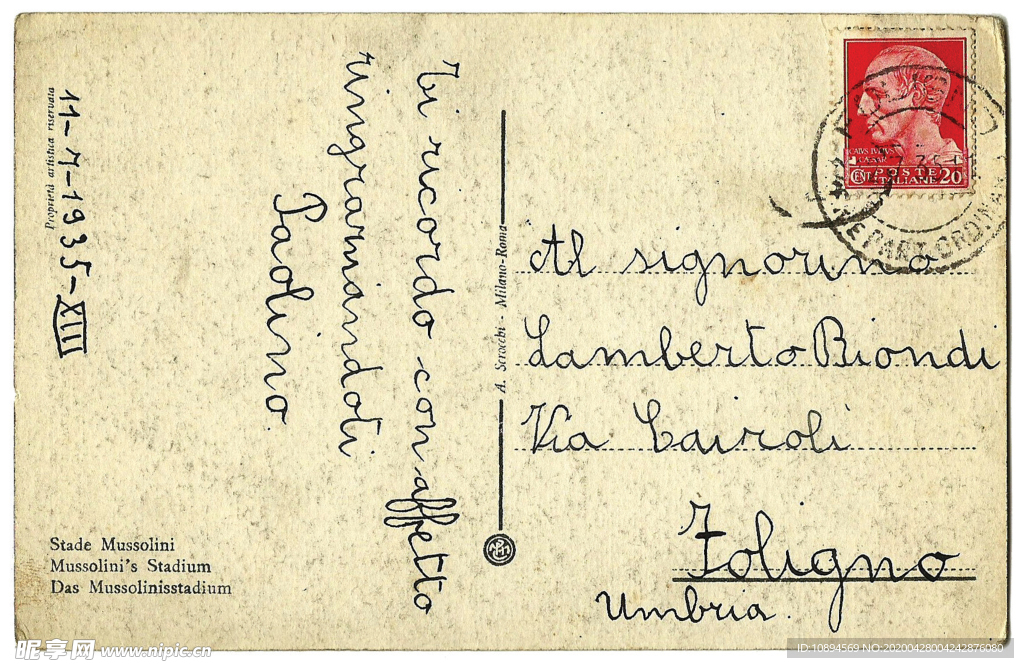 Ti ricordo con affetto
ringraziandoti
Paolino.
11-7-1935-XIII
Proprietà artistica riservata
Stade Mussolini
Mussolini's Stadium
Das Mussolinisstadium
A. Scrocchi - Milano-Roma
CAIVS IVLIVS
CAESAR
CENT POSTE
ITALIANE 20
Al signorino
Lamberto Biondi
Via Cairoli
Foligno
Umbria.
昵享网 www.nipic.cn
ID:10894569 NO:20200428004242876080